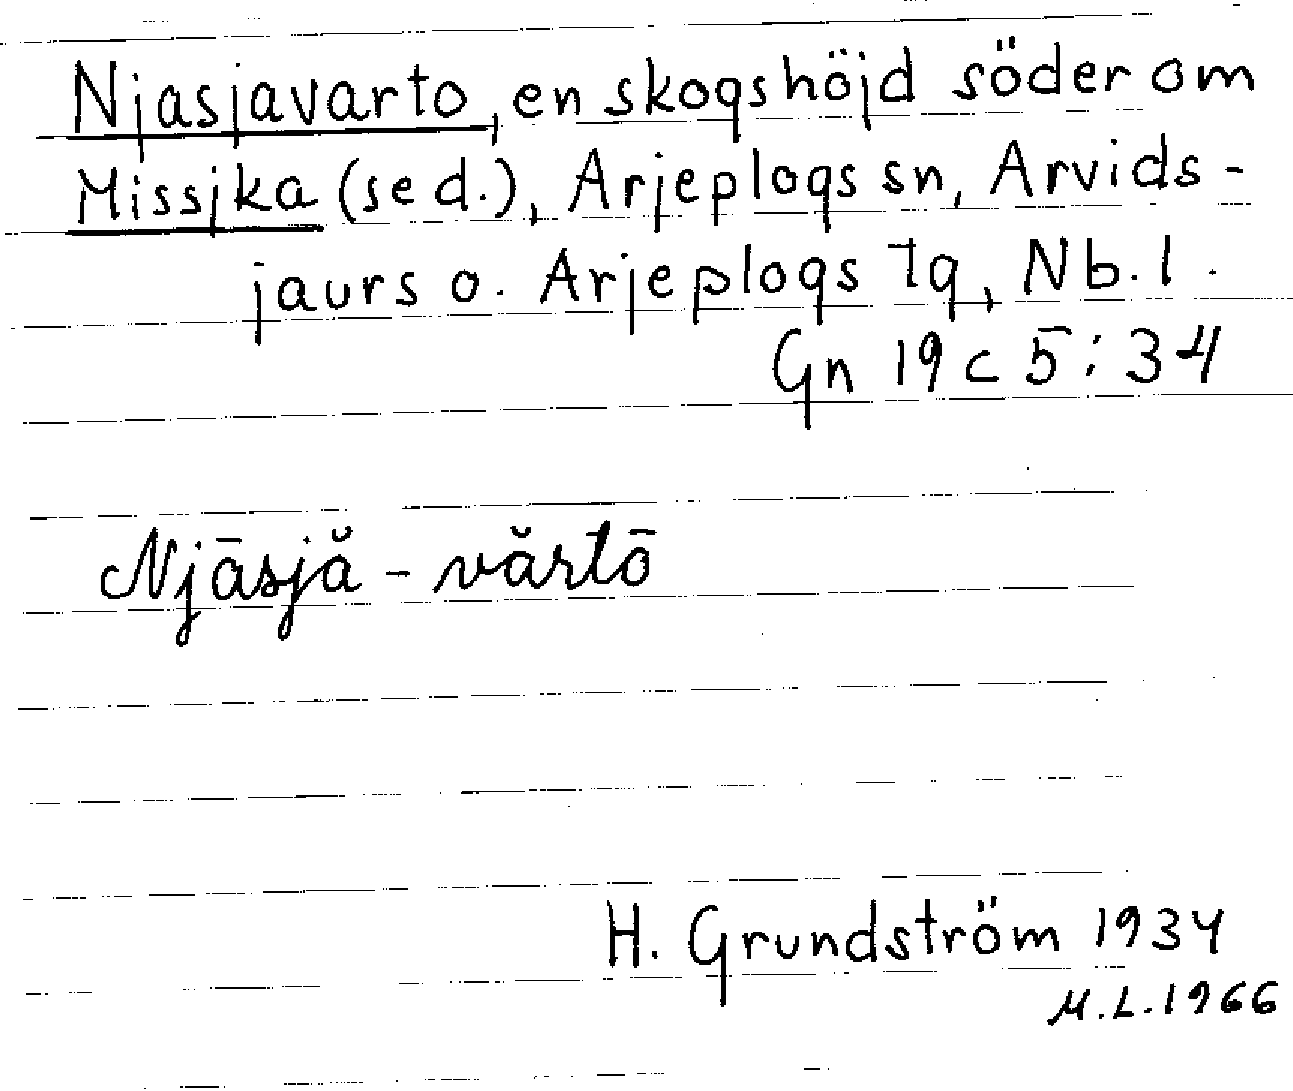 Njasjavarto, en skogshöjd söder om
Missjka (sed.), Arjeplogs sn, Arvids-
jaurs o. Arjeplogs tg, Nb. l.
Gn 19 c 5:34
Njāsjă - vărtō
H. Grundström 1934
M.L. 1966